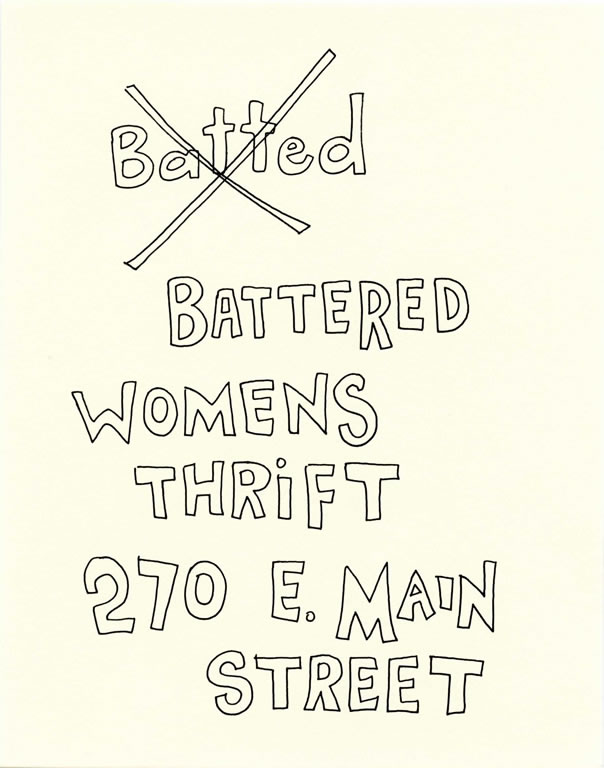 Batted
BATTERED
WOMENS
THRiFT
270 E. MAIN
STREET